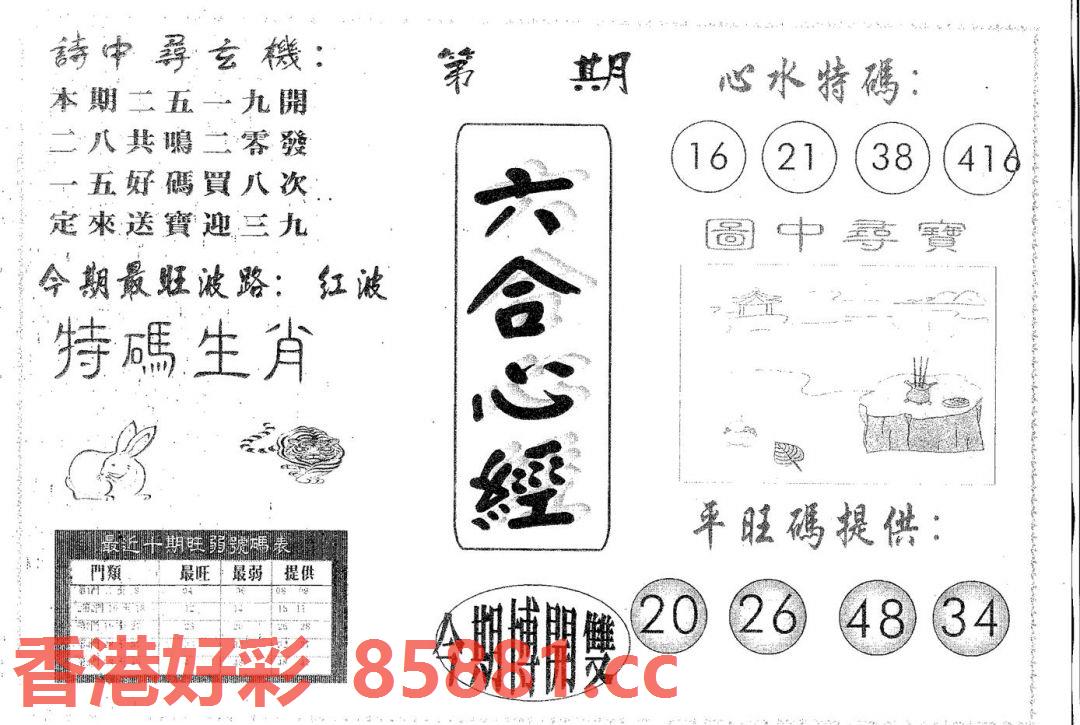 詩中尋玄機：
本期二五一九開
二八共鳴二零發
一五好碼買八次
定來送寶迎三九
今期最旺波路：红波
特碼生肖
最近十期旺弱號碼表
門類 最旺 最弱 提供
第 期
六合心經
今期博開雙
心水特碼：
16 21 38 416
圖中尋寶
平旺碼提供：
20 26 48 34
香港好彩 85881.cc